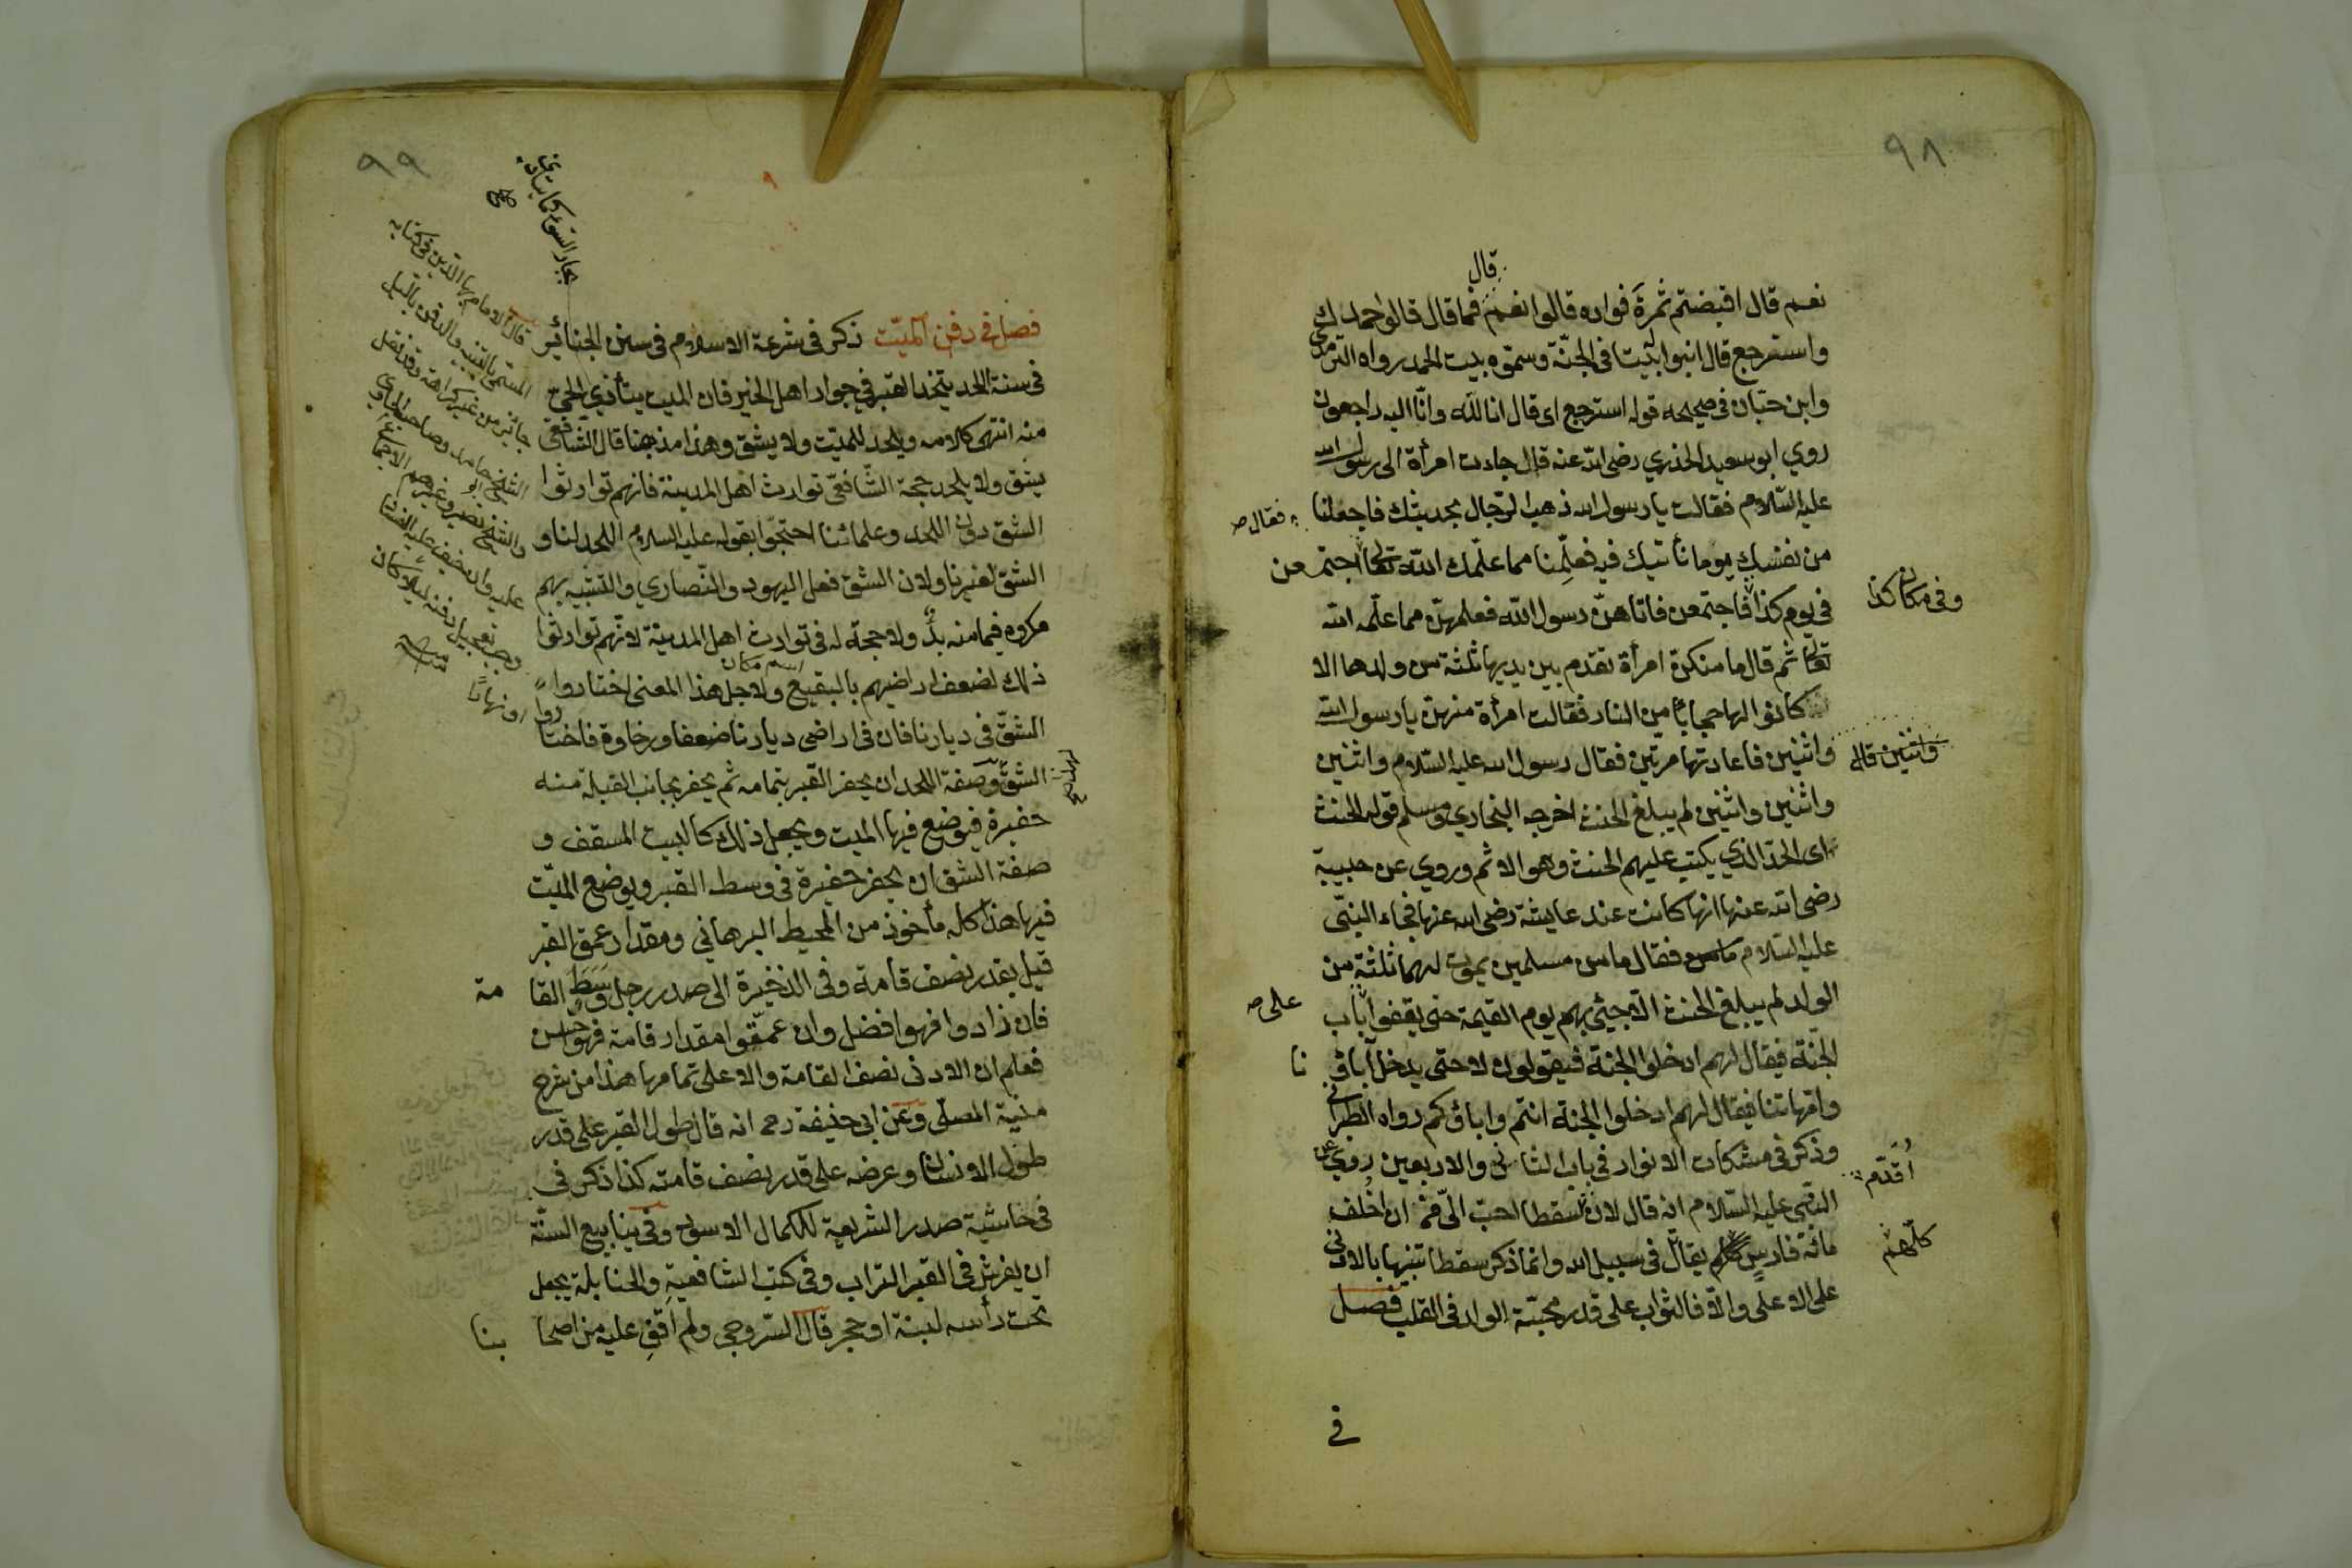 ٩٨
قال
نعم قال اقبضتم ثمرة فواده قالوا نعم فما قال قالوا حمدك
واسترجع قال ابنوا له بيتا فى الجنّة وسمّوه بيت الحمد رواه الترمذي
وابن حبّان فى صحيحه قوله استرجع اى قال انا لله وانّا اليه راجعون
روي ابو سعيد الخذري رضى الله عنه قال جاءت امرأة الى رسول الله
عليه السّلام فقالت يا رسول الله ذهب الرّجال بحديثك فاجعل لنا
فقال
من نفسك يوما نأتيك فيه فعلّمنا مما علّمك الله تعالى اجتمعن
فى يوم كذا فاجتمعن فاتاهنّ رسول الله فعلمهنّ مما علّمه الله
وفى مكان كذا
تعالى ثم قال ما منكنّ امرأة تقدم بين يديها ثلثة من ولدها الا
كانوا لها حجابا من النار فقالت امرأة منهنّ يا رسول الله
واثنين فاعادتها مرّتين فقال رسول الله عليه السّلام واثنين
واثنين قال
واثنين واثنين لم يبلغ الحنث اخرجه البخاري ومسلم قوله الحنث
اى الحدّ الذي يكتب عليهم الحنث وهو الاثم وروي عن حبيبة
رضى الله عنها انها كانت عند عايشة رضى الله عنها فجاء النبىّ
عليه السّلام فقال ما من مسلمين يموت لهما ثلثة من
الولد لم يبلغ الحنث الّا جيئ بهم يوم القيمة حتى يقفوا باب
على
الجنّة فيقال لهم ادخلوا الجنة فيقولون لا حتى يدخل آباؤ
نا
وامّهاتنا فيقال لهم ادخلوا الجنة انتم واباؤكم رواه الطبراني
وذكر فى مشكات الانوار فى باب الثانى والاربعين روي عن
النبىّ عليه السّلام انه قال لان سقطا احبّ الىّ من ان اخلف
أقدّم
مائة فارس يقاتل فى سبيل الله وانما ذكر سقطا تنبيها بالادنى
كلّهم
على الاعلى والّا فالثواب على قدر محبّة الولد فى القلب فصل
فى
٩٩
فصل فى دفن الميّت ذكر فى شرعة الاسلام فى سنن الجنائز
فى سنة اللحد يتخذ القبر فى جوار اهل الخير فان الميت يتأذي الحىّ
منه انتهى كلامه ويلحد للميّت ولا يشق وهذا مذهبنا قال الشّافعىّ
يشق ولا يلحد حجة الشّافعىّ توارث اهل المدينة فانهم توارثوا
الشق دون اللحد وعلمائنا احتجّوا بقوله عليه السلام اللحد لنا و
الشق لغيرنا ولان الشق فعل اليهود والنّصاري والتشبيه بهم
مكروه فيما منه بدّ ولا حجة له فى توارث اهل المدينة لانّهم توارثوا
اسم مكان
ذلك لضعف اراضيهم بالبقيع ولاجل هذا المعنى اختاروا
الشقّ فى ديارنا فان فى اراضى ديارنا ضعفا ورخاوة فاختا
روا
الشقّ وصفة اللحد ان يحفر القبر بتمامه ثم يحفر بجانب القبلة منه
حفيرة فيوضع فيها الميت ويجعل ذلك كالبيت المسقف و
صفة الشق ان يحفر حفيرة فى وسط القبر ويوضع الميّت
فيها هذا كله مأخوذ من المحيط البرهاني ومقدار عمق القبر
قيل بقدر نصف قامة وفى الذخيرة الى صدر رجل وَسَط القا
مة
فان زادوا فهو افضل وان عمّقوا مقدار قامة فهو احسن
فعلم ان الادنى نصف القامة والاعلى تمامها هذا من شرح
منية المصلّى وعن ابى حنيفة رحمه انه قال طول القبر على قدر
طول الانسان وعرضه على قدر نصف قامته كذا ذكر فى
فى حاشية صدر الشريعة لكمال الاسود وفى ينابيع السنّة
ان يفرش فى القبر التراب وفى كتب الشافعية والحنابلة يجعل
تحت رأسه لبنة او حجر قال السّروجى ولم اقف عليه من اصحا
بنا
قال الامام بهاالدّين فى كتابه
جائز من غير كراهة وقد نقل
او نهارًا